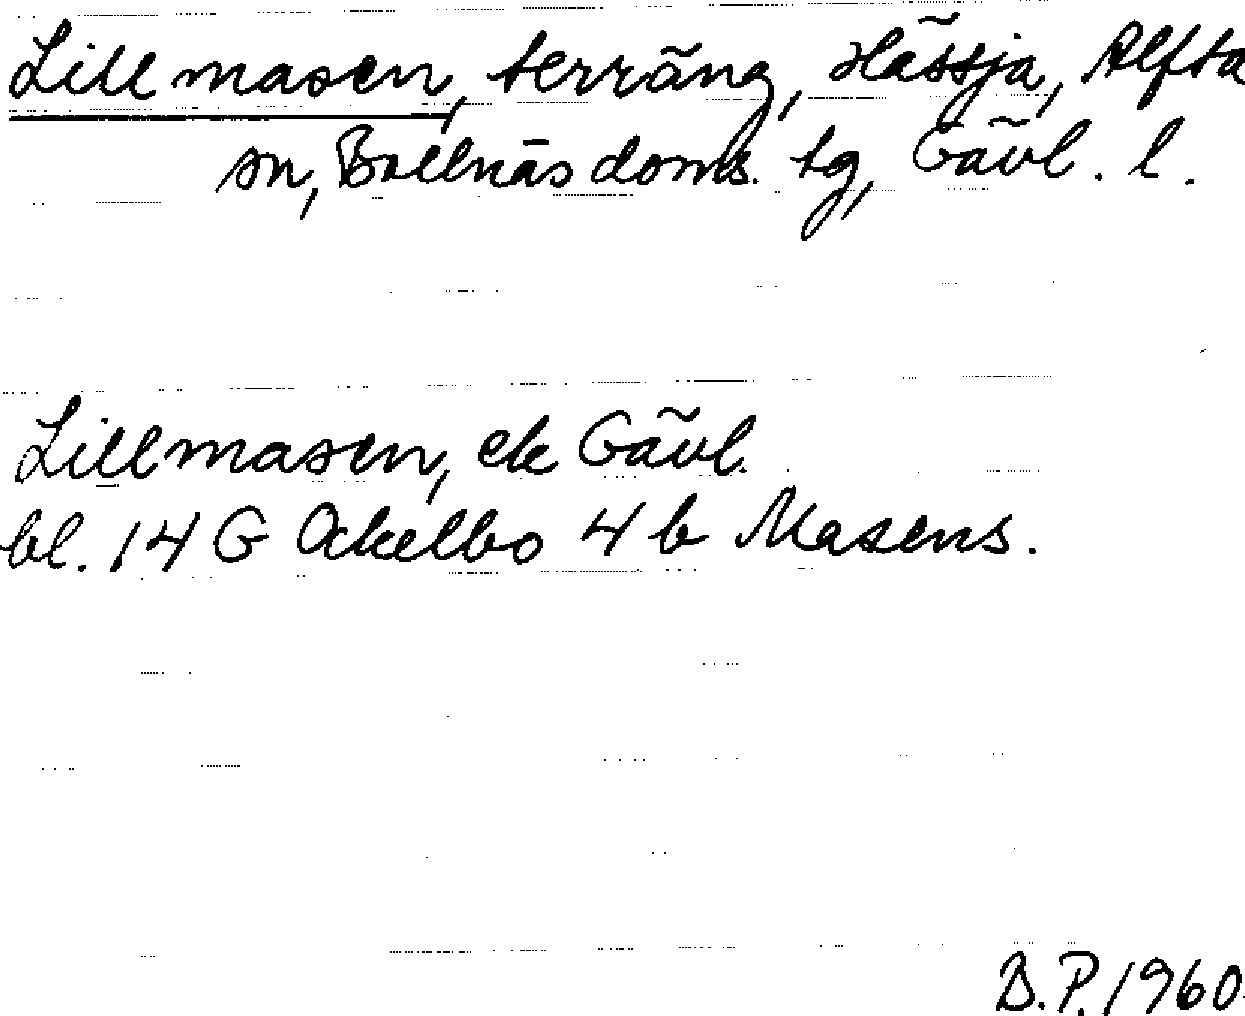 Lillmasen, terräng, Hässja, Alfta
sn, Bollnäs doms. tg, Gävl. l.
Lillmasen, ek Gävl.
bl. 14 G Ockelbo 4 b Masens.
B.P. 1960